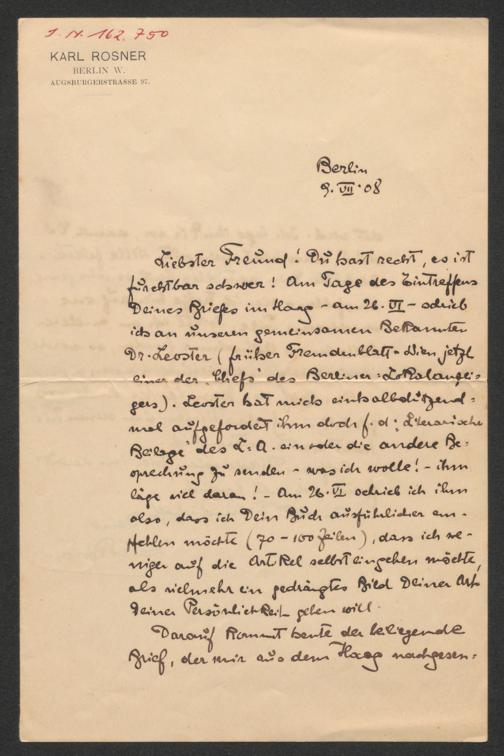 J. N. 162.750
KARL ROSNER
BERLIN W.
AUGSBURGERSTRASSE 97.
Berlin
9. VII. 08
Liebster Freund! Du hast recht, es ist
furchtbar schwer! Am Tage des Eintreffens
Deines Briefes im Haag - am 26. VI - schrieb
ich an unseren gemeinsamen Bekannten
Dr. Leoster (früher Fremdenblatt-Wien jetzt
einer der "Chefs" des Berliner-Lokalanzei-
gers). Leoster hat mich ein halbdutzend-
mal aufgefordert ihm doch f. d. "Literarische
Beilage" des L. A. ein oder die andere Be-
sprechung zu senden - was ich wolle! - ihm
läge viel daran! - Am 26. VI schrieb ich ihm
also, dass ich Dein Buch ausführlicher em-
pfehlen möchte (70 - 100 Zeilen), dass ich we-
niger auf die Artikel selbst eingehen möchte,
als vielmehr ein gedrängtes Bild Deiner Art
Deiner Persönlichkeit geben will.
Darauf kommt heute der beiliegende
Brief, der mir aus dem Haag nachgesen-